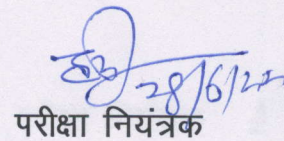 28/6/22
परीक्षा नियंत्रक